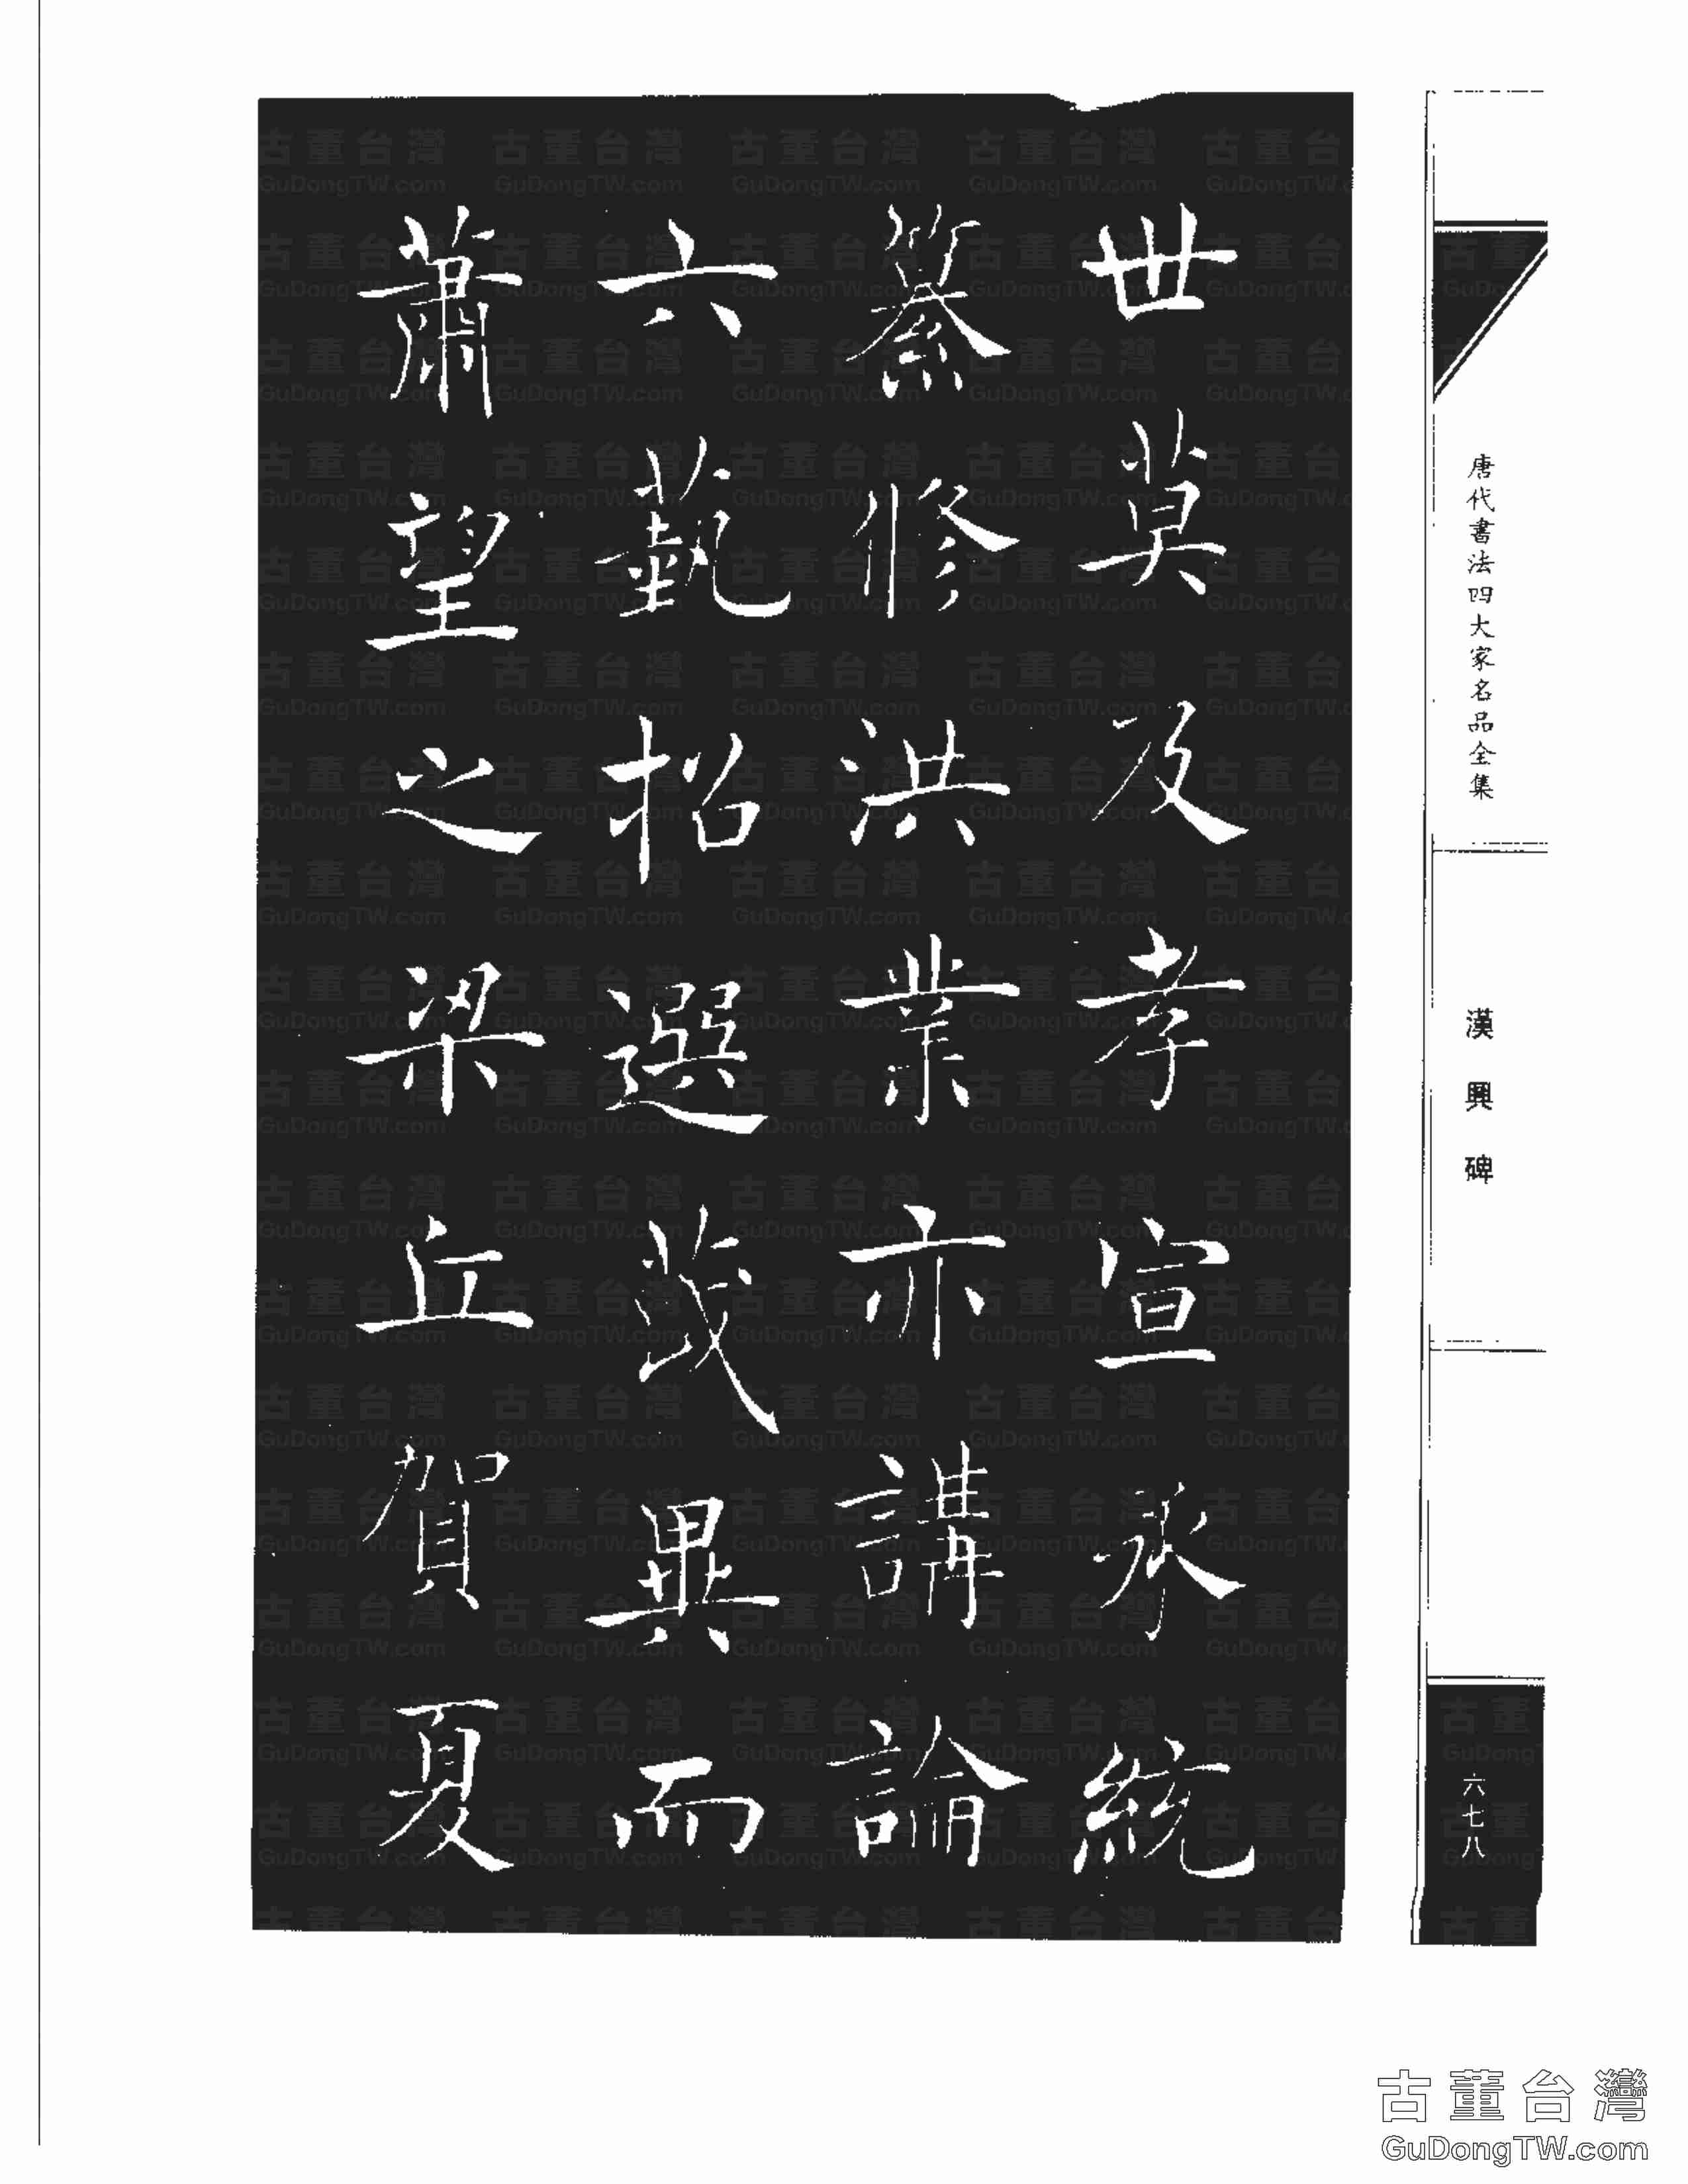 唐代書法四大家名品全集
漢興碑
六七八
世莫及孝宣承統
纂修洪業亦講論
六藝招選茂異而
蕭望之梁丘賀夏
古董台灣
GuDongTW.com